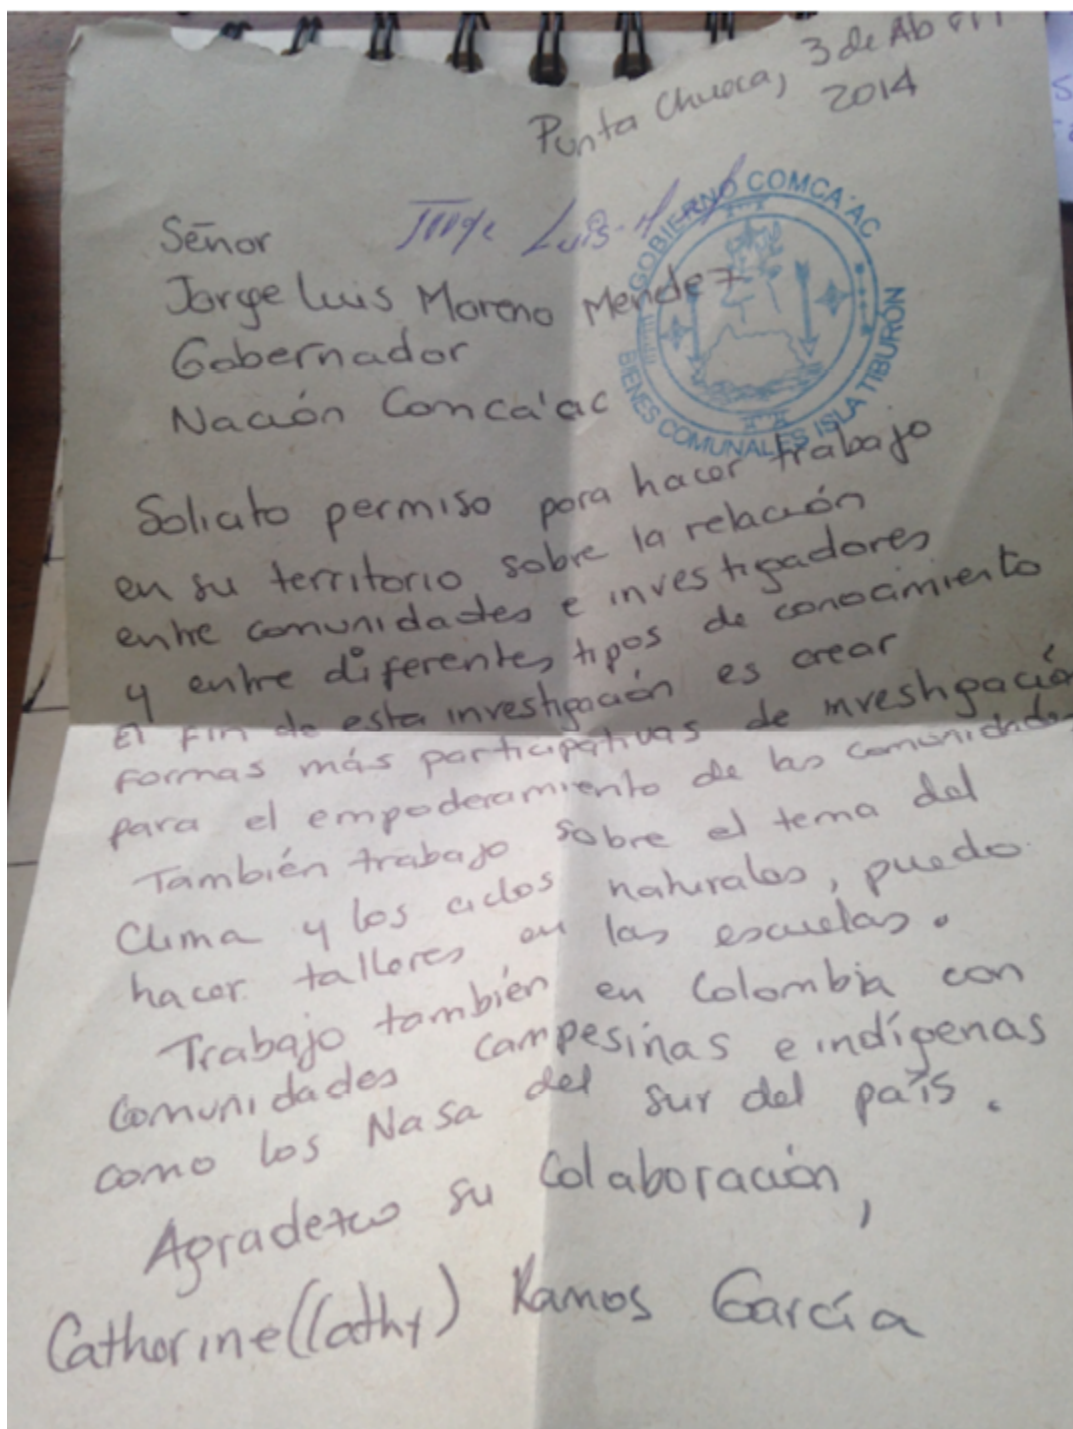 Punta Chueca, 3 de Abril
2014
Jorge Luis M
GOBIERNO COMCA'AC
BIENES COMUNALES ISLA TIBURÓN
Señor
Jorge Luis Moreno Mendez
Gobernador
Nación Comca'ac
Solicito permiso para hacer trabajo
en su territorio sobre la relación
entre comunidades e investigadores
y entre diferentes tipos de conocimiento
El fin de esta investigación es crear
formas más participativas de investigación
para el empoderamiento de las comunidades
También trabajo sobre el tema del
Clima y los ciclos naturales, puedo
hacer talleres en las escuelas.
Trabajo también en Colombia con
Comunidades campesinas e indígenas
como los Nasa del sur del país.
Agradezco su Colaboración,
Catherine (Cathy) Ramos García